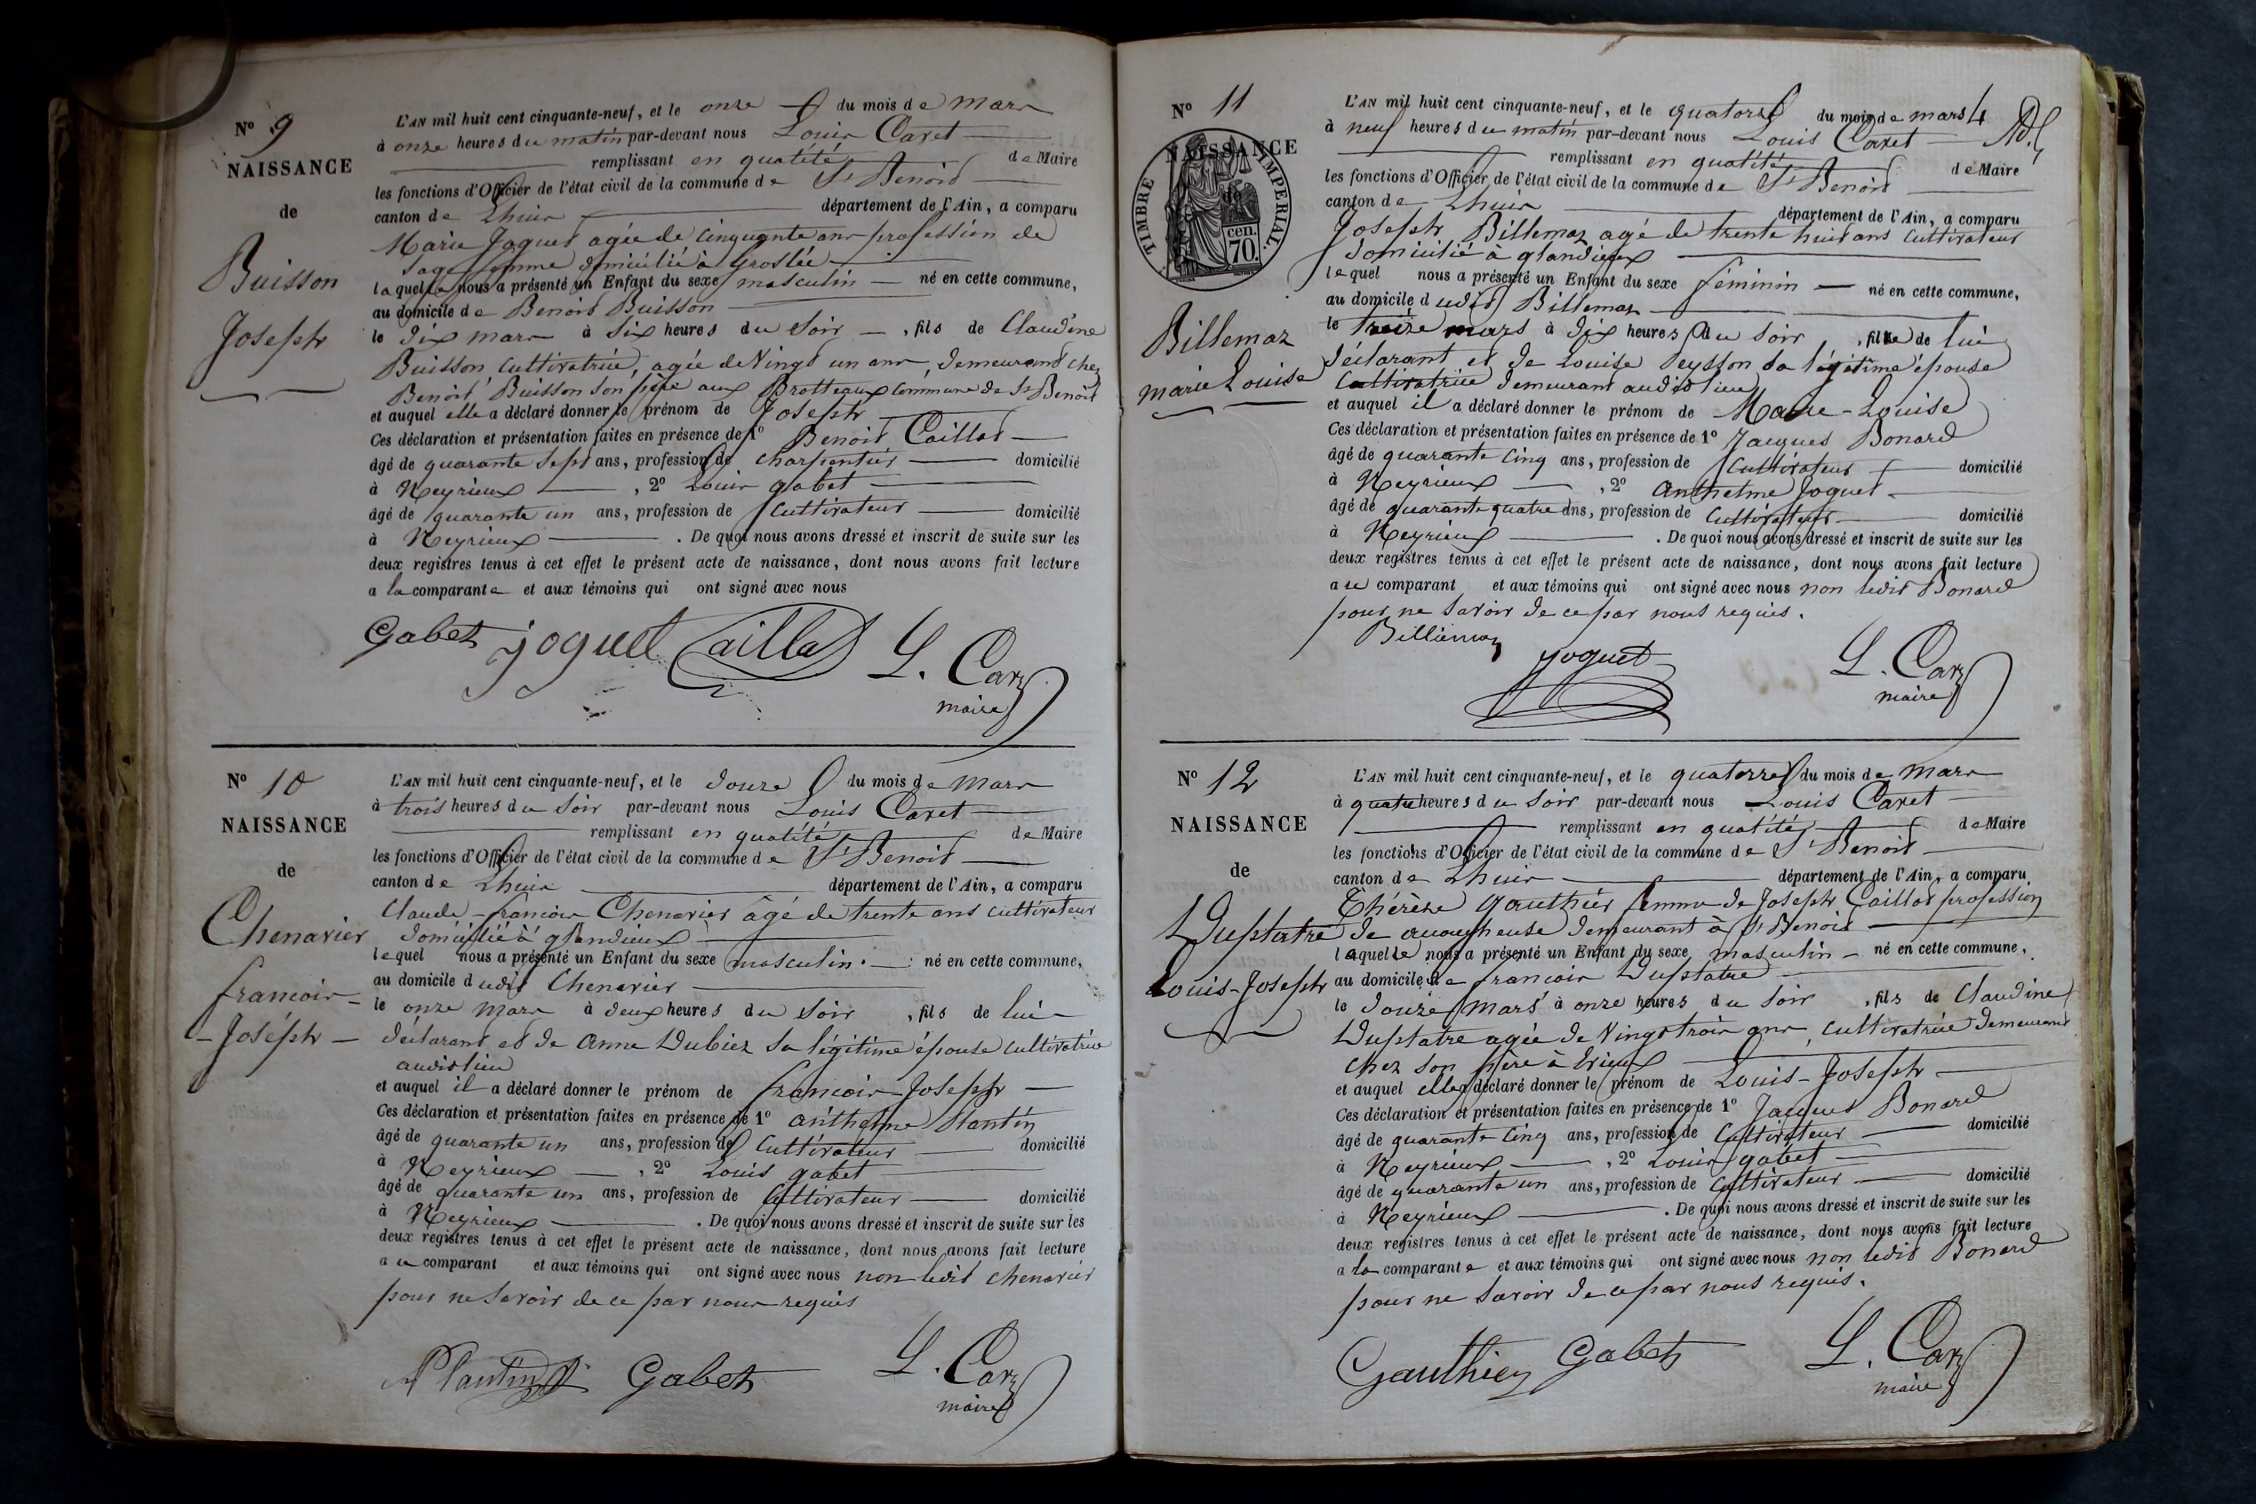 N° 9
NAISSANCE
de
Buisson
Joseph
L'AN mil huit cent cinquante-neuf, et le onze du mois de mars
à onze heures du matin par-devant nous Louis Caret
remplissant en qualité de Maire
les fonctions d'Officier de l'état civil de la commune de St Benoit
canton de Lhuis département de l'Ain, a comparu
Marie Joguet agée de cinquante ans profession de
sage femme domicilié à Groslée
laquelle nous a présenté un Enfant du sexe masculin né en cette commune,
au domicile de Benoit Buisson
le dix mars à six heures du soir, fils de Claudine
Buisson cultivatrice, agée de vingt un ans, demeurant chez
Benoit Buisson son père aux Brotteaux commune de St Benoit
et auquel elle a déclaré donner le prénom de Joseph
Ces déclaration et présentation faites en présence de 1° Benoit Caillat
âgé de quarante sept ans, profession de charpentier domicilié
à Neyrieux, 2° Louis gabet
âgé de quarante un ans, profession de cultivateur domicilié
à Neyrieux. De quoi nous avons dressé et inscrit de suite sur les
deux registres tenus à cet effet le présent acte de naissance, dont nous avons fait lecture
a la comparante et aux témoins qui ont signé avec nous
Gabet joguet Caillat L. Caret
maire
N° 10
NAISSANCE
de
Chenavier
françois-
-Joseph-
L'AN mil huit cent cinquante-neuf, et le douze du mois de mars
à trois heures du soir par-devant nous Louis Caret
remplissant en qualité de Maire
les fonctions d'Officier de l'état civil de la commune de St Benoit
canton de Lhuis département de l'Ain, a comparu
Claude-françois Chenavier âgé de trente ans cultivateur
domicilié à glandieux
lequel nous a présenté un Enfant du sexe masculin. né en cette commune,
au domicile dudit Chenavier
le onze mars à deux heures du soir, fils de lui
déclarant et de anne Dubiez sa légitime épouse cultivatrice
audit lieu
et auquel il a déclaré donner le prénom de françois Joseph
Ces déclaration et présentation faites en présence de 1° anthelme Plantin
âgé de quarante un ans, profession de cultivateur domicilié
à Neyrieux, 2° Louis gabet
âgé de quarante un ans, profession de cultivateur domicilié
à Neyrieux. De quoi nous avons dressé et inscrit de suite sur les
deux registres tenus à cet effet le présent acte de naissance, dont nous avons fait lecture
a u comparant et aux témoins qui ont signé avec nous non ledit chenavier
pour ne savoir de ce par nous requis
Plantin Gabet L. Caret
maire
N° 11
NAISSANCE
de
TIMBRE IMPERIAL
cen.
70.
Billemaz
marie Louise
L'AN mil huit cent cinquante-neuf, et le quatorze du mois de mars
à neuf heures du matin par-devant nous Louis Caret
remplissant en qualité de Maire
les fonctions d'Officier de l'état civil de la commune de St Benoit
canton de Lhuis département de l'Ain, a comparu
Joseph Billemaz agé de trente huit ans cultivateur
domicilié à glandieux
lequel nous a présenté un Enfant du sexe féminin né en cette commune,
au domicile dudit Billemaz
le treize mars à dix heures du soir, fille de lui
déclarant et de Louise Peysson sa légitime épouse
cultivatrice demeurant audit lieu
et auquel il a déclaré donner le prénom de Marie-Louise
Ces déclaration et présentation faites en présence de 1° Jacques Bonard
âgé de quarante cinq ans, profession de cultivateur domicilié
à Neyrieux, 2° anthelme Joguet
âgé de quarante quatre ans, profession de cultivateur domicilié
à Neyrieux. De quoi nous avons dressé et inscrit de suite sur les
deux registres tenus à cet effet le présent acte de naissance, dont nous avons fait lecture
a u comparant et aux témoins qui ont signé avec nous non ledit Bonard
pour ne savoir de ce par nous requis.
Billiemaz
joguet L. Caret
maire
N° 12
NAISSANCE
de
Duplatre
Louis-Joseph
L'AN mil huit cent cinquante-neuf, et le quatorze du mois de mars
à quatre heures du soir par-devant nous Louis Caret
remplissant en qualité de Maire
les fonctions d'Officier de l'état civil de la commune de St Benoit
canton de Lhuis département de l'Ain, a comparu
Thérèse Gauthier femme de Joseph Caillat profession
de accoucheuse demeurant à St Benoit
laquelle nous a présenté un Enfant du sexe masculin né en cette commune,
au domicile de francois Duplatre
le douze mars à onze heures du soir, fils de Claudine
Duplatre agée de vingt trois ans, cultivatrice demeurant
chez son père à Evieux
et auquel elle a déclaré donner le prénom de Louis-Joseph
Ces déclaration et présentation faites en présence de 1° Jacques Bonard
âgé de quarante cinq ans, profession de cultivateur domicilié
à Neyrieux, 2° Louis gabet
âgé de quarante un ans, profession de cultivateur domicilié
à Neyrieux. De quoi nous avons dressé et inscrit de suite sur les
deux registres tenus à cet effet le présent acte de naissance, dont nous avons fait lecture
a la comparante et aux témoins qui ont signé avec nous non ledit Bonard
pour ne savoir de ce par nous requis.
Gauthier Gabet L. Caret
maire